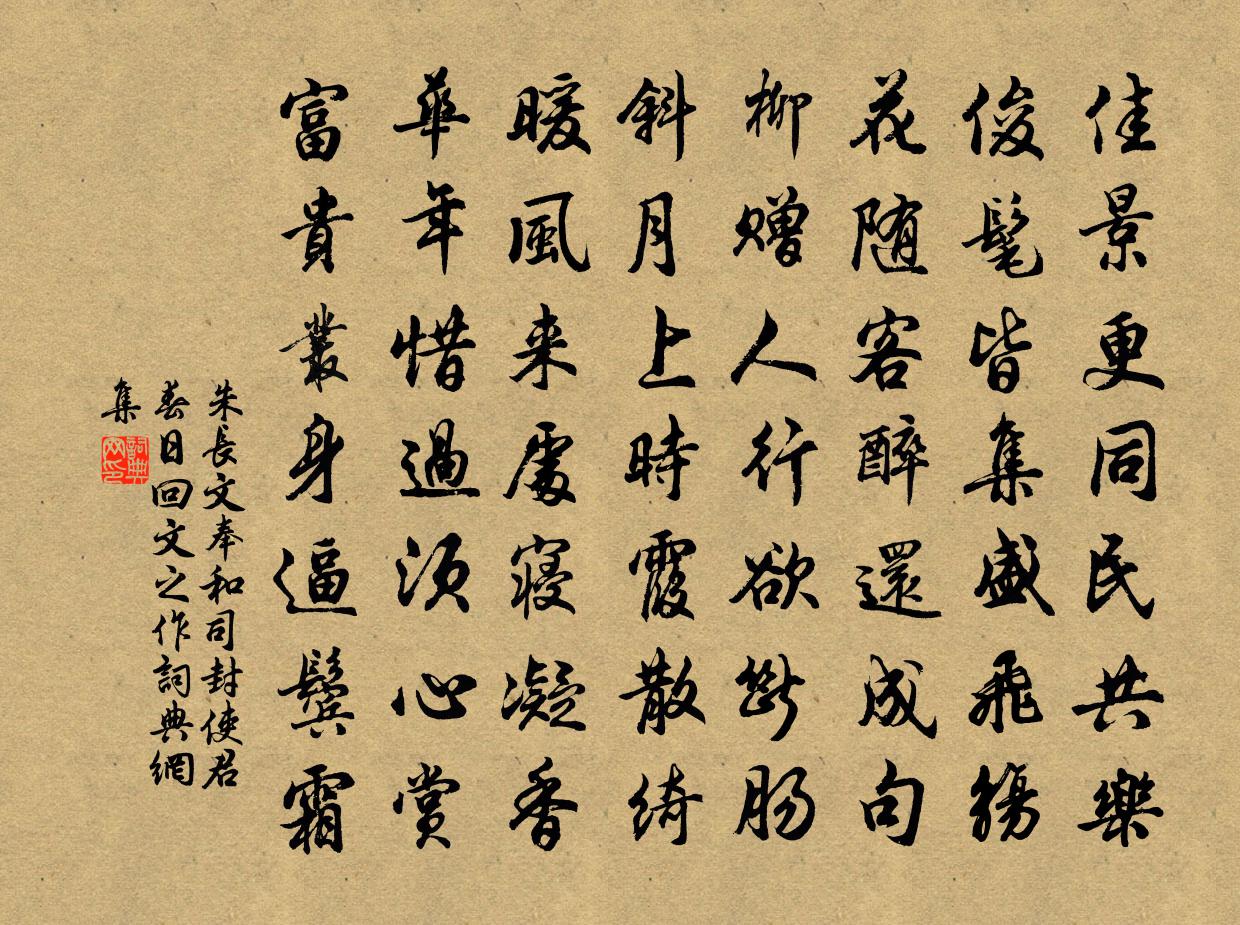 佳景更同民共樂
俊髦皆集盛飛觴
花随客醉還成句
柳赠人行欲斷肠
斜月上時霞散綺
暖風来處寝凝香
華年惜過須心賞
富貴叢身逼鬓霜
朱長文奉和司封使君
春日回文之作詞典網
集
詞典網印